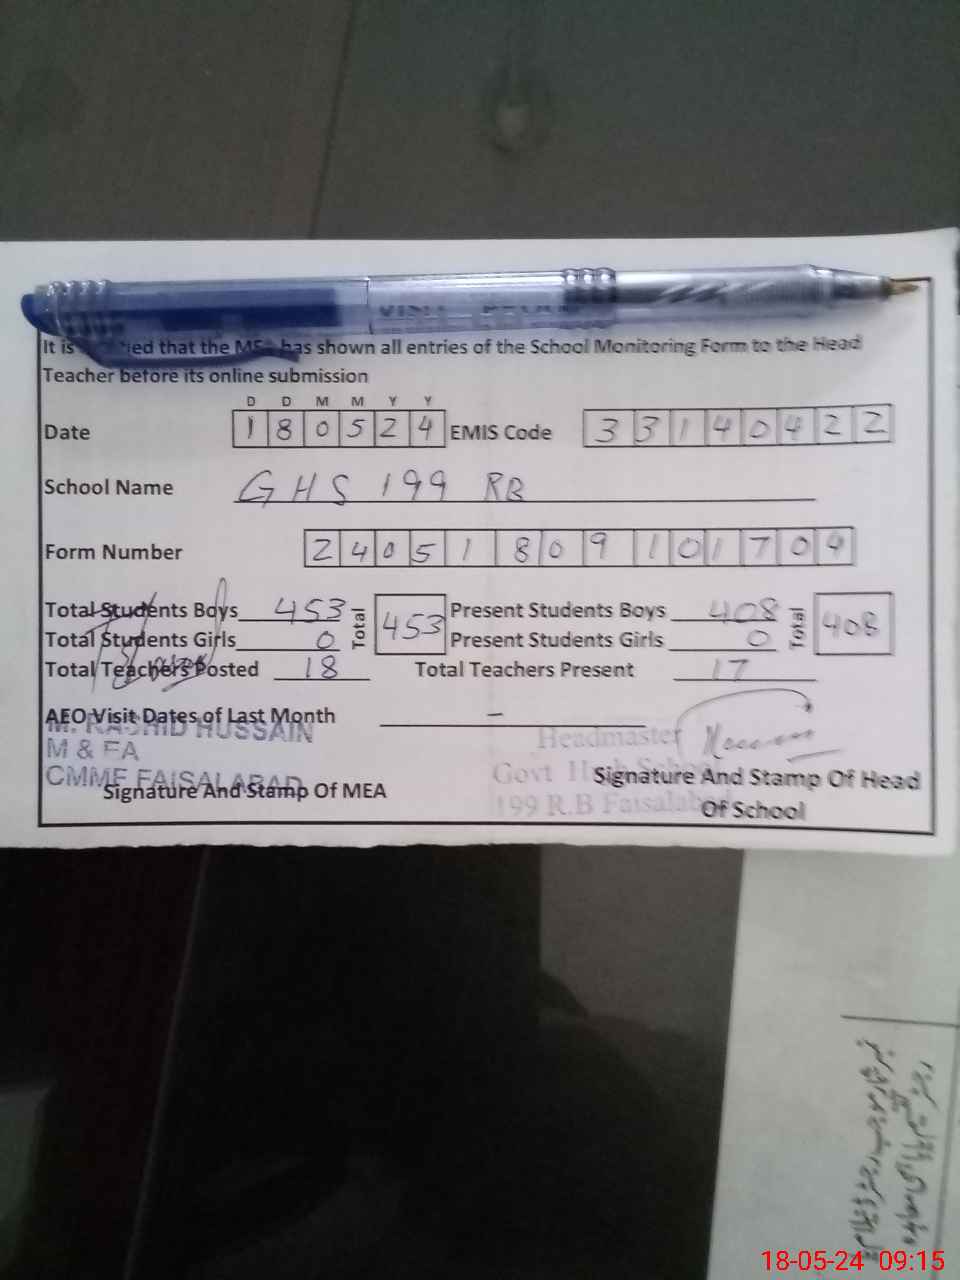 It is that the has shown all entries of the School Monitoring Form to the Head
Teacher before its online submission
D D M M Y Y
Date 1 8 0 5 2 4 EMIS Code 3 3 1 4 0 4 2 2
School Name GHS 199 RB
Form Number 2 4 0 5 1 8 0 9 1 0 1 7 0 4
Total Students Boys 453 Total 453 Present Students Boys 408 Total 408
Total Students Girls 0 Present Students Girls 0
Total Teachers Posted 18 Total Teachers Present 17
AEO Visit Dates of Last Month -
M. RASHID HUSSAIN
M & EA
CMMF FAISALABAD
Signature And Stamp Of MEA
Headmaster
Govt High School
199 R.B Faisalabad
Signature And Stamp Of Head
Of School
18-05-24 09:15